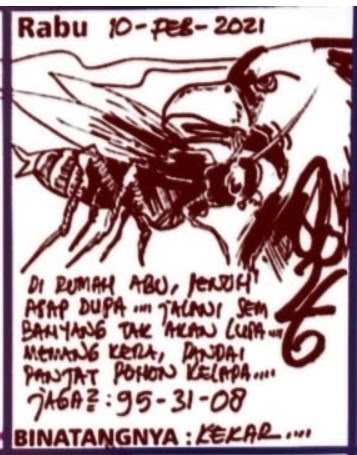 Rabu 10-FEB-2021
DI RUMAH ABU, PENUH
ASAP DUPA .... JALANI SEM
BAHYANG TAK AKAN LUPA....
MEMANG KERA, PANDAI
PANJAT POHON KELAPA....
JAGA2 : 95-31-08
BINATANGNYA : KEKAR....